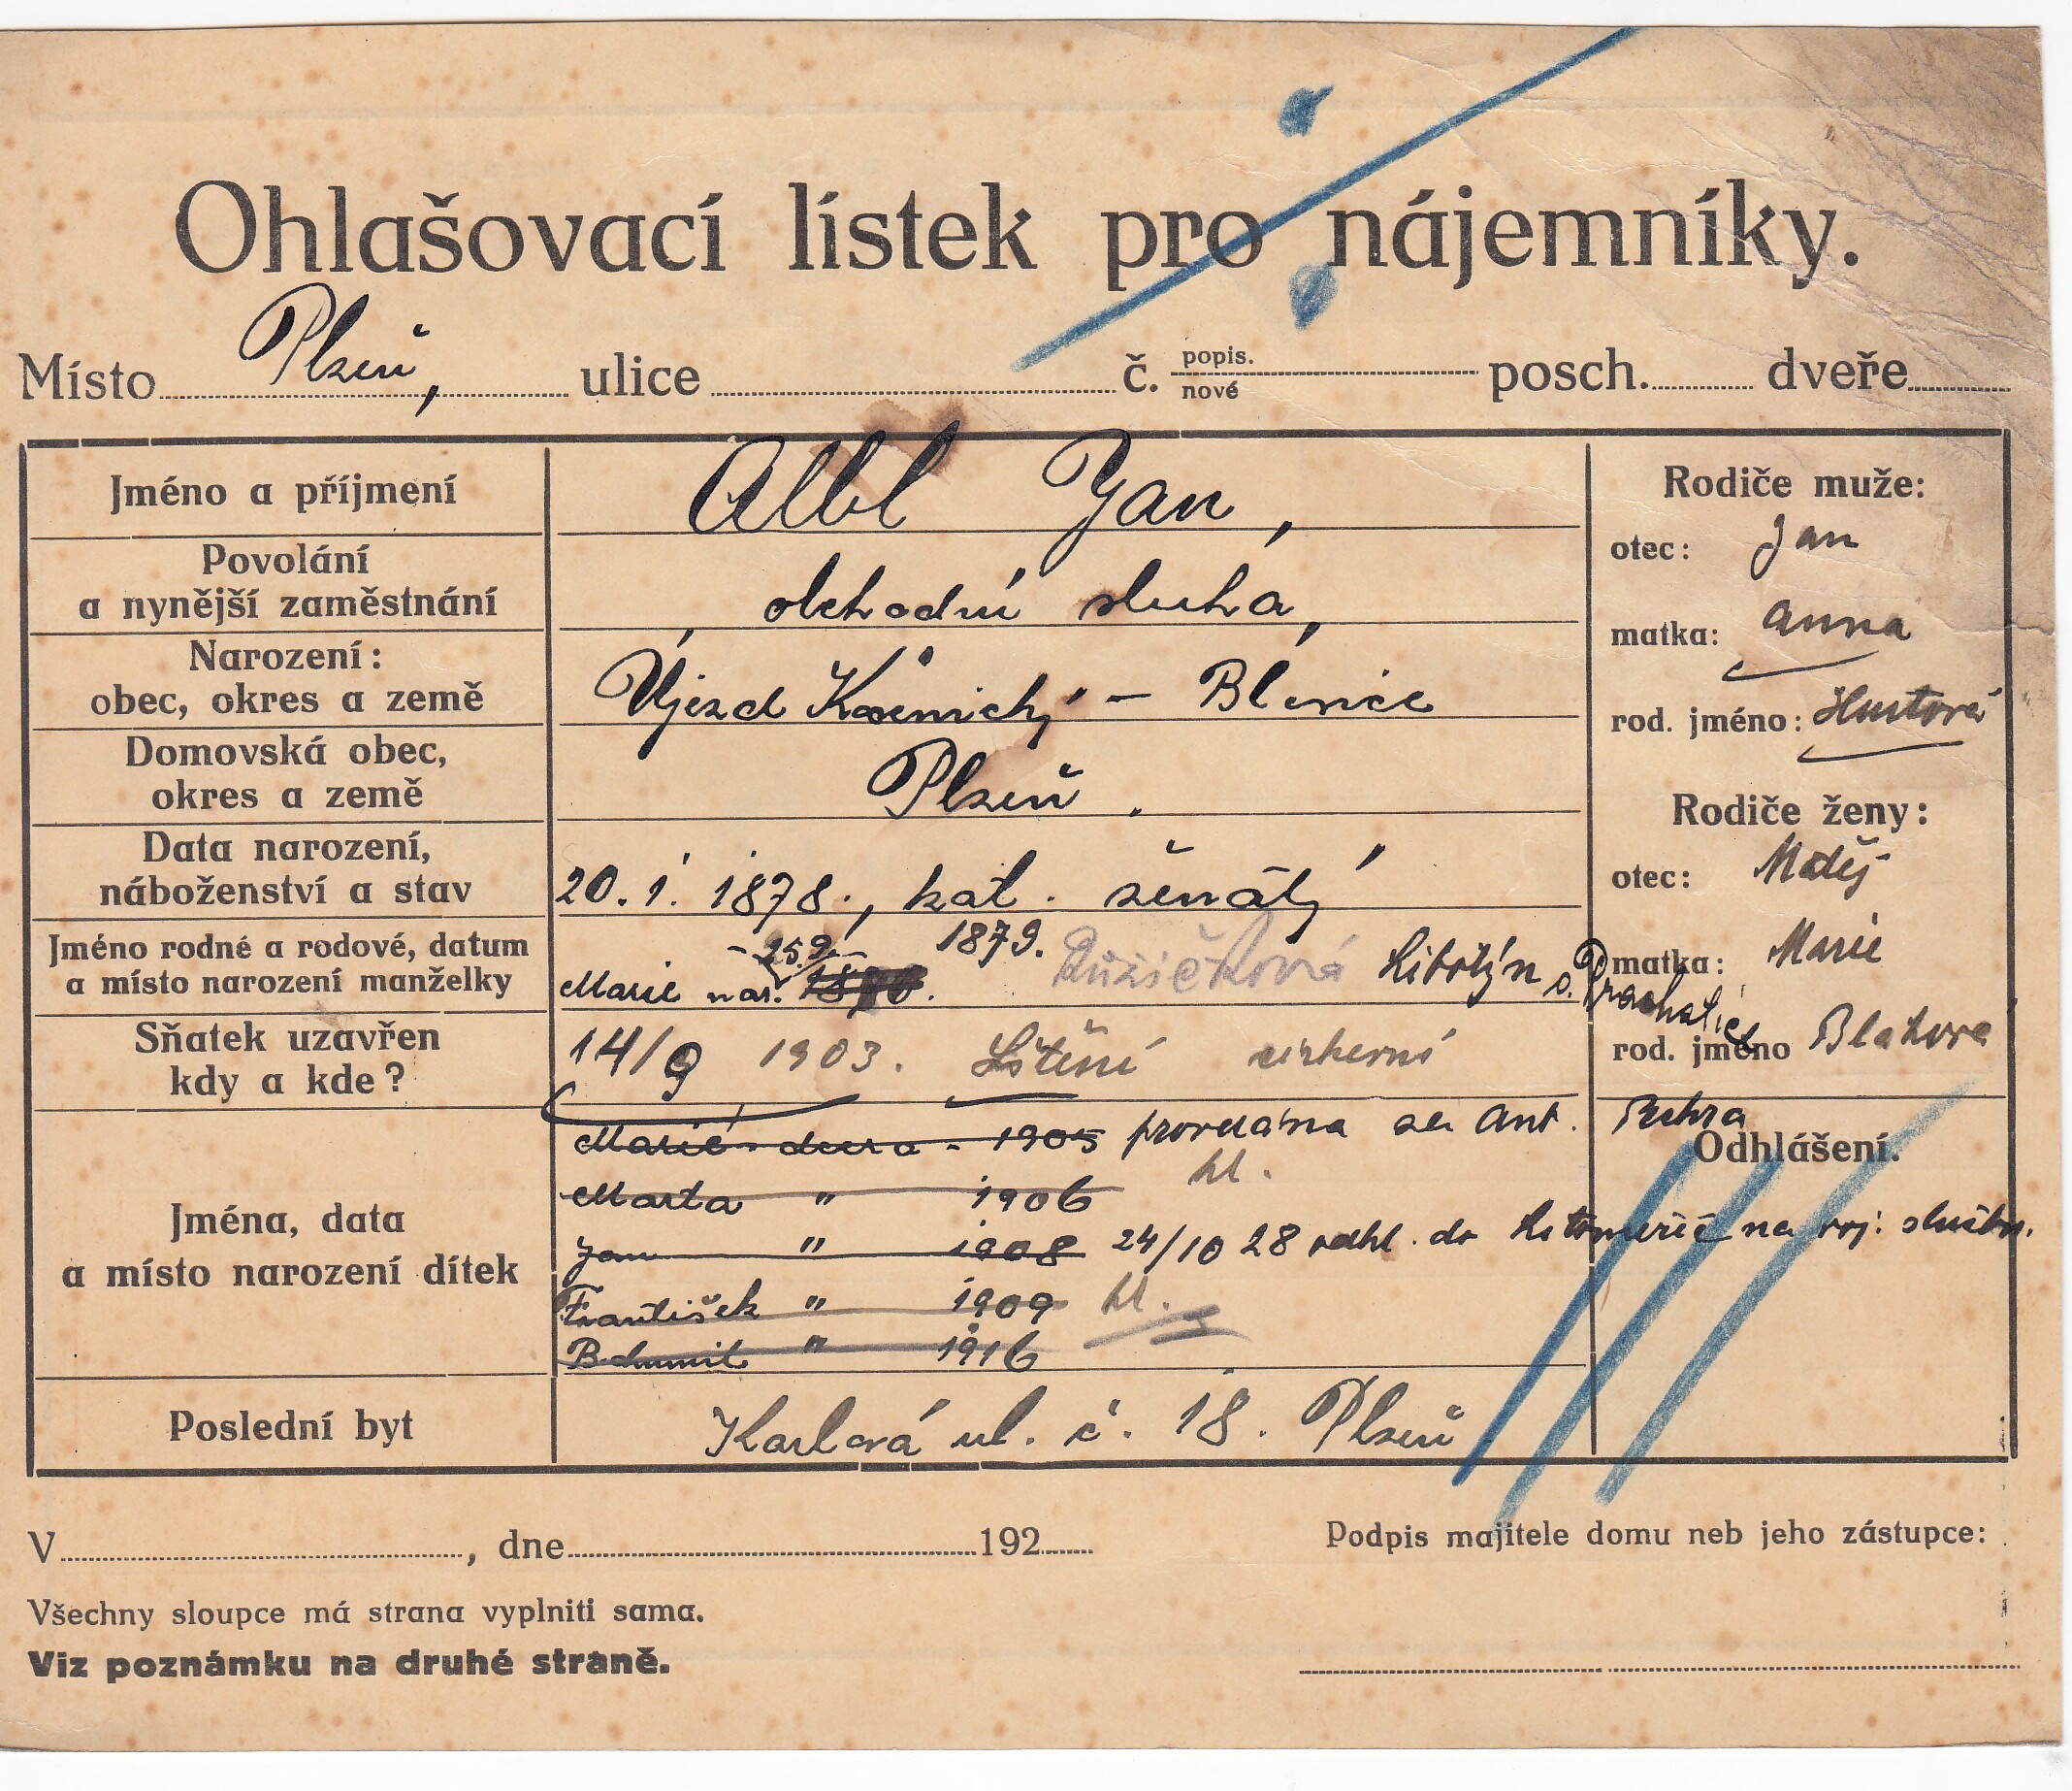 Ohlašovací lístek pro nájemníky.
Místo Plzeň, ulice č. popis. nové posch. dveře
Jméno a příjmení Albl Jan,
Povolání
a nynější zaměstnání obchodní sluha,
Narození:
obec, okres a země Újezd Kamenický – Blovice
Domovská obec,
okres a země Plzeň.
Data narození,
náboženství a stav 20. 1. 1878., kat. ženatý
Jméno rodné a rodové, datum
a místo narození manželky Marie nar. 25.9. 1879. Růžičková Libotýn o. Prachatice
Sňatek uzavřen
kdy a kde? 14/9 1903. Lštění církevní
Jména, data
a místo narození dítek
Marie dcera - 1905 provdána za Ant.
Marta " 1906 hl.
Jan " 1908 24/10 28 odhl. do Litoměřic na voj. službu.
František " 1909 hl.
Bohumil " 1916
Poslední byt Karlová ul. č. 18. Plzeň
Rodiče muže:
otec: Jan
matka: Anna
rod. jméno:
Rodiče ženy:
otec: Matěj
matka: Marie
rod. jméno
Odhlášení.
V , dne 192
Podpis majitele domu neb jeho zástupce:
Všechny sloupce má strana vyplniti sama.
Viz poznámku na druhé straně.